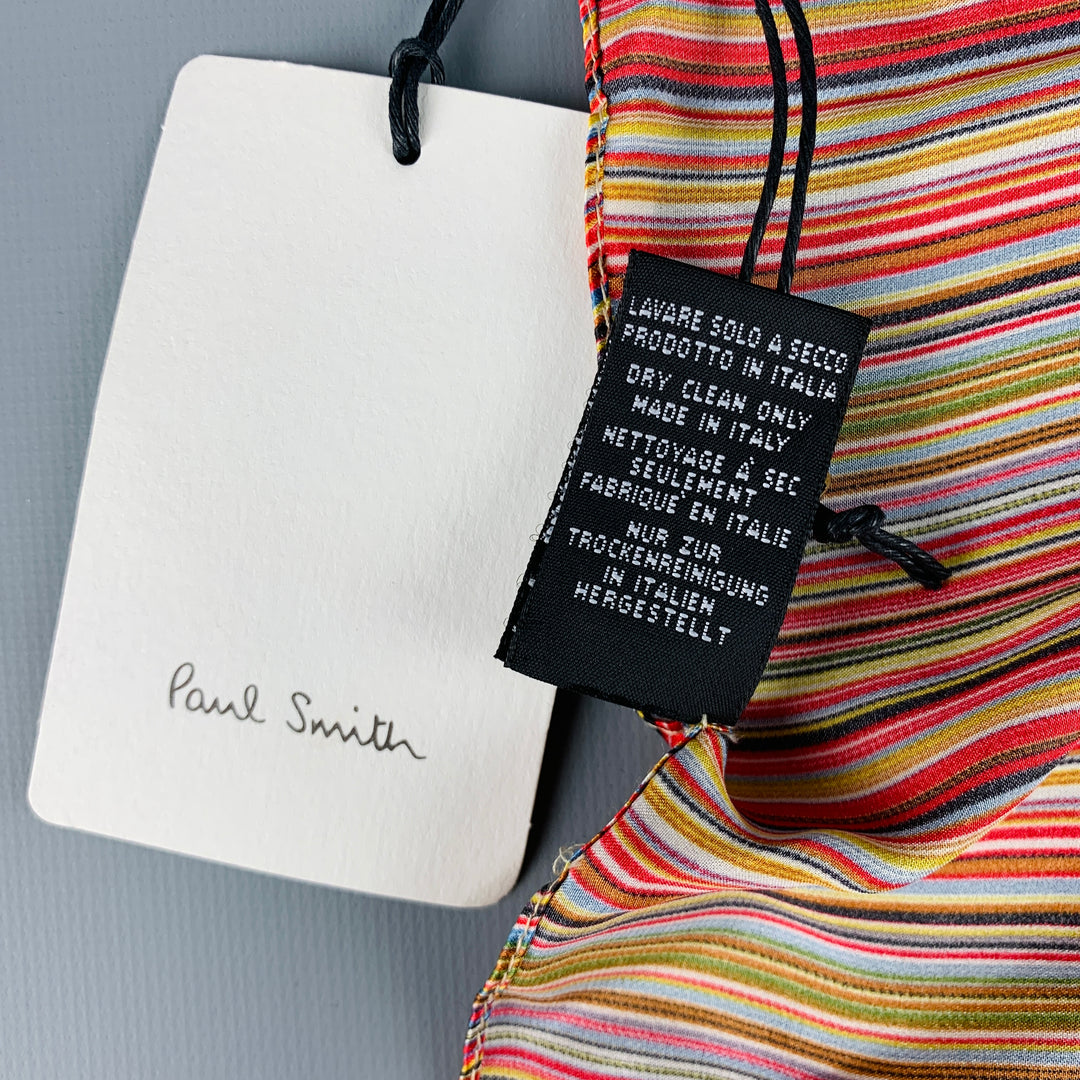 Paul Smith
LAVARE SOLO A SECCO
PRODOTTO IN ITALIA
DRY CLEAN ONLY
MADE IN ITALY
NETTOYAGE A' SEC
SEULEMENT
FABRIQUE' EN ITALIE
NUR ZUR
TROCKENREINIGUNG
IN ITALIEN
HERGESTELLT